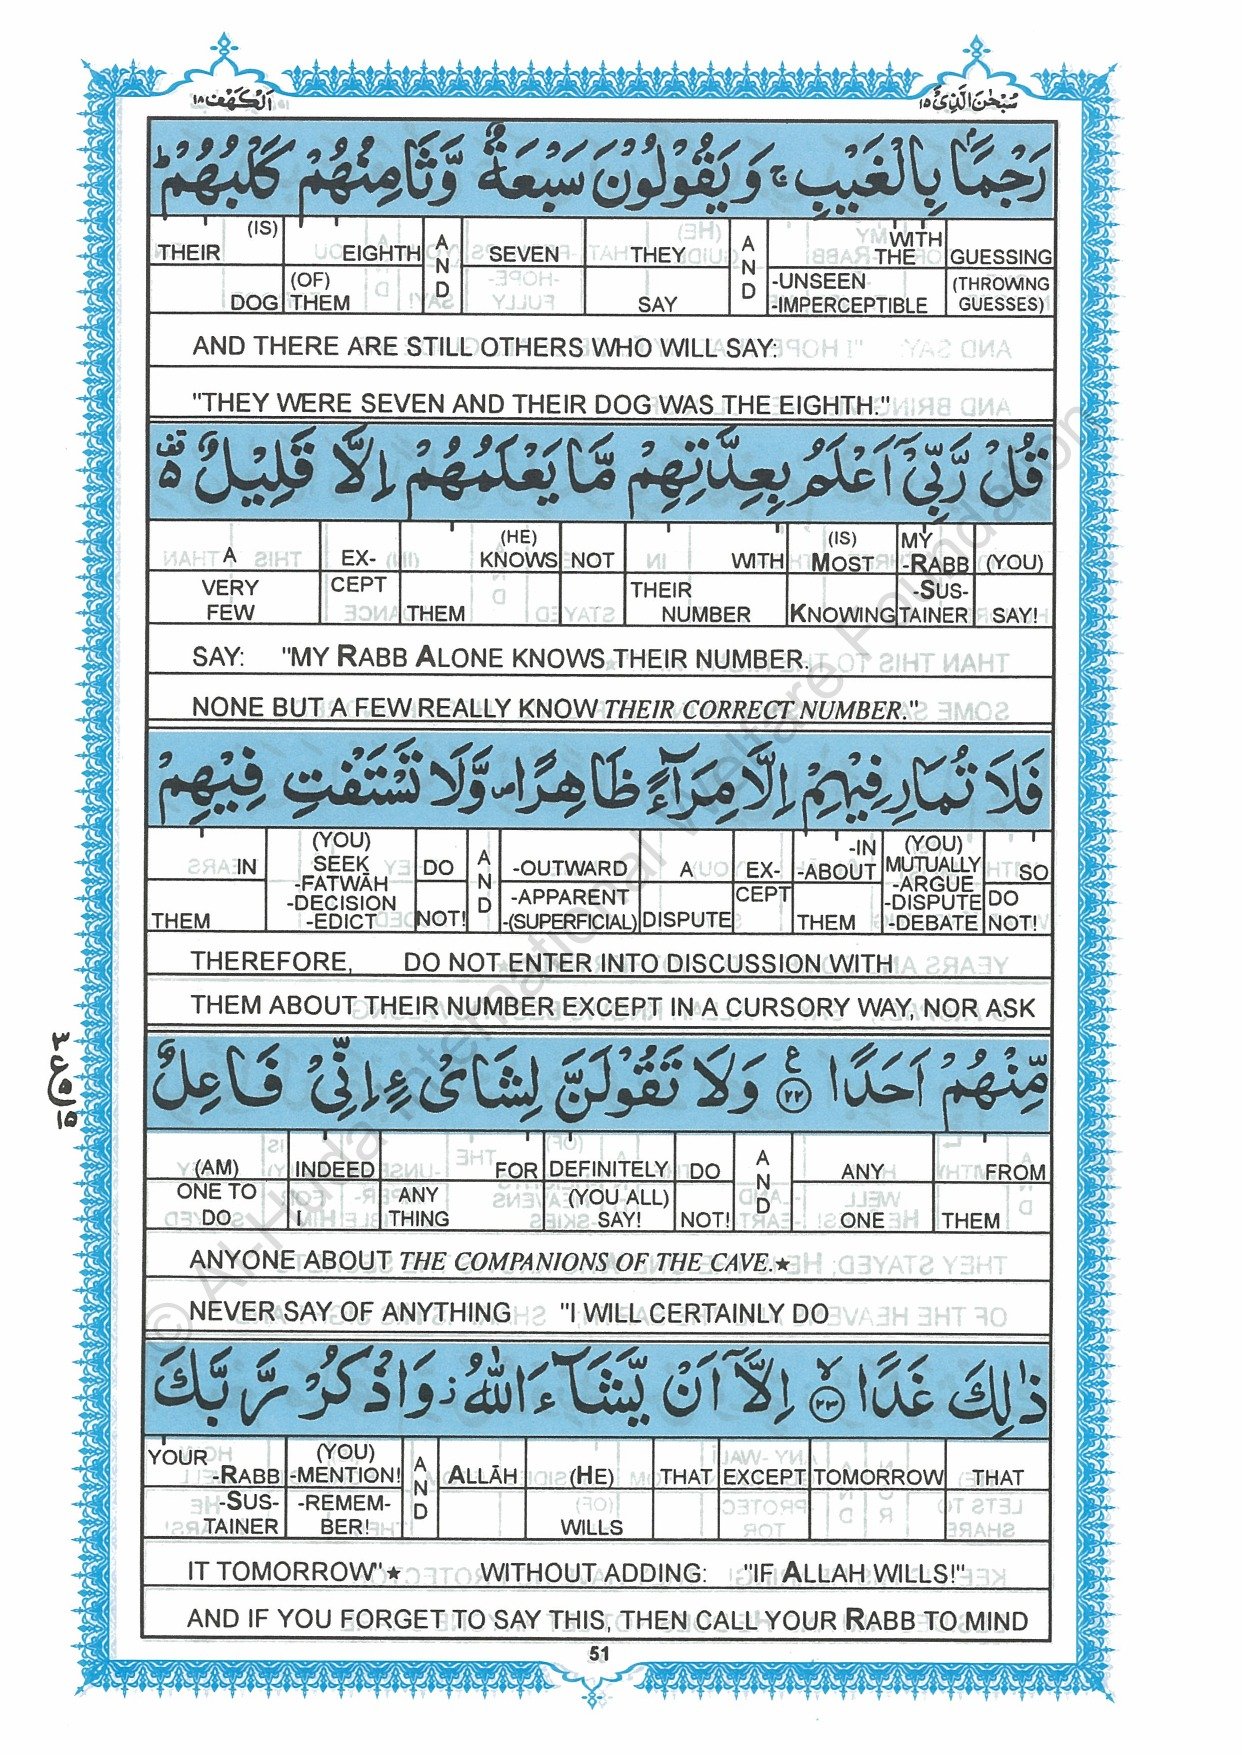 اَلْكَهْف ١٨
سُبْحٰنَ الَّذِیْ ١٥
رَجْمًۢا بِالْغَیْبِ ۚ وَ یَقُوْلُوْنَ سَبْعَةٌ وَّ ثَامِنُهُمْ كَلْبُهُمْ ؕ
(IS) THEIR DOG
EIGHTH (OF) THEM
AND
SEVEN
THEY SAY
AND
WITH THE -UNSEEN -IMPERCEPTIBLE
GUESSING (THROWING GUESSES)
AND THERE ARE STILL OTHERS WHO WILL SAY:
"THEY WERE SEVEN AND THEIR DOG WAS THE EIGHTH."
قُلْ رَّبِّیْۤ اَعْلَمُ بِعِدَّتِهِمْ مَّا یَعْلَمُهُمْ اِلَّا قَلِیْلٌ ۫
A VERY FEW
EX- CEPT
(HE) KNOWS THEM
NOT
WITH THEIR NUMBER
(IS) MOST KNOWING
MY -RABB -SUS- TAINER
(YOU) SAY!
SAY: "MY RABB ALONE KNOWS THEIR NUMBER.
NONE BUT A FEW REALLY KNOW THEIR CORRECT NUMBER."
فَلَا تُمَارِ فِیْهِمْ اِلَّا مِرَآءً ظَاهِرًا ۪ وَّ لَا تَسْتَفْتِ فِیْهِمْ
IN THEM
(YOU) SEEK -FATWĀH -DECISION -EDICT
DO NOT!
AND
-OUTWARD -APPARENT -(SUPERFICIAL)
A DISPUTE
EX- CEPT
-IN -ABOUT THEM
(YOU) MUTUALLY -ARGUE -DISPUTE -DEBATE
SO DO NOT!
THEREFORE, DO NOT ENTER INTO DISCUSSION WITH
THEM ABOUT THEIR NUMBER EXCEPT IN A CURSORY WAY, NOR ASK
مِّنْهُمْ اَحَدًا ۠ ع ٢٢ وَ لَا تَقُوْلَنَّ لِشَایْءٍ اِنِّیْ فَاعِلٌ
(AM) ONE TO DO
INDEED I
FOR ANY THING
DEFINITELY (YOU ALL) SAY!
DO NOT!
AND
ANY ONE
FROM THEM
ANYONE ABOUT THE COMPANIONS OF THE CAVE.★
NEVER SAY OF ANYTHING "I WILL CERTAINLY DO
ذٰلِكَ غَدًا ۙ ٢٣ اِلَّاۤ اَنْ یَّشَآءَ اللّٰهُ ؗ وَ اذْكُرْ رَّبَّكَ
YOUR -RABB -SUS- TAINER
(YOU) -MENTION! -REMEM- BER!
AND
ALLĀH
(HE) WILLS
THAT
EXCEPT
TOMORROW
THAT
IT TOMORROW"★ WITHOUT ADDING: "IF ALLAH WILLS!"
AND IF YOU FORGET TO SAY THIS, THEN CALL YOUR RABB TO MIND
51
© Al-Huda International Welfare Foundation